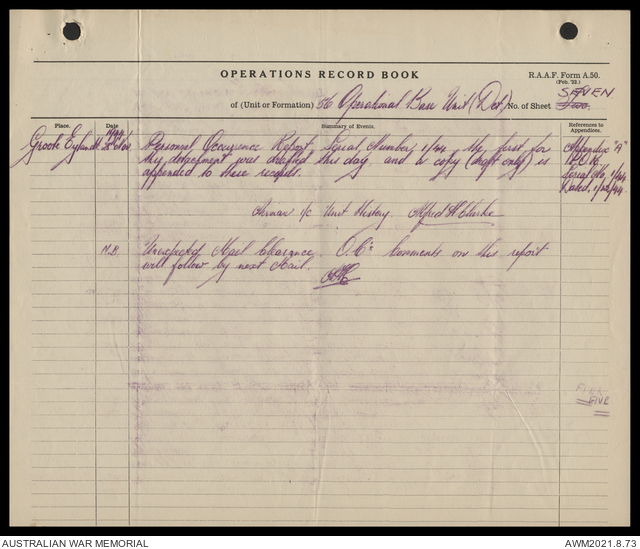 OPERATIONS RECORD BOOK
R.A.A.F. Form A.50.
(Feb. '22.)
SEVEN
of (Unit or Formation) 56 Operational Base Unit (Det) No. of Sheet Two.
Place.
Date
Summary of Events.
References to Appendices.
Groote Eylandt
1944
Personnel Occurrence Report, Serial Number 1/44 the first for
Appendix "A"
this detachment was drafted this day and a copy (draft only) is
P.O.R.
appended to these records.
Serial No. 1/44
Dated.
Airman i/c Unit History. Alfred H Clarke
N.B. Unexpected Mail Clearance. O.C's Comments on this report
will follow by next Mail.
AUSTRALIAN WAR MEMORIAL
AWM2021.8.73